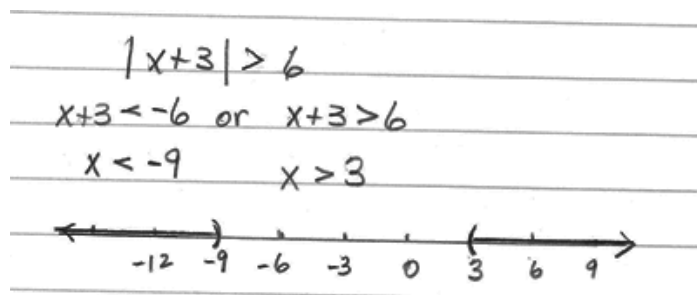 |x+3| > 6
x+3 < -6 or x+3 > 6
x < -9 x > 3
-12 -9 -6 -3 0 3 6 9